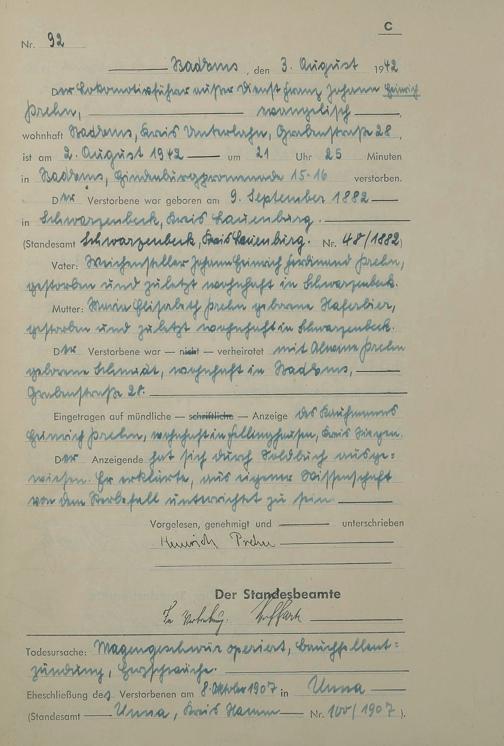 C
Nr. 92
Bad Ems, den 3. August 1942
Der Lokomotivführer außer Dienst Franz Johann Heinrich
Prehn, evangelisch,
wohnhaft Bad Ems, Kreis Unterlahn, Grabenstraße 28,
ist am 2. August 1942 um 21 Uhr 25 Minuten
in Bad Ems, Hindenburgpromenade 15-16 verstorben.
Der Verstorbene war geboren am 9. September 1882
in Schwarzenbeck, Kreis Lauenburg.
(Standesamt Schwarzenbeck, Kreis Lauenburg. Nr. 48/1882)
Vater: Weichensteller Johann Heinrich Ferdinand Prehn,
gestorben und zuletzt wohnhaft in Schwarzenbeck.
Mutter: Maria Elisabeth Prehn geborene Haferbier,
gestorben und zuletzt wohnhaft in Schwarzenbeck.
Der Verstorbene war — nicht — verheiratet mit Alwine Prehn
geborene Schmidt, wohnhaft in Bad Ems,
Grabenstraße 28.
Eingetragen auf mündliche — schriftliche — Anzeige des Kaufmanns
Heinrich Prehn, wohnhaft in Fellinghausen, Kreis Siegen.
Der Anzeigende hat sich durch Soldbuch ausge=
wiesen. Er erklärte, aus eigener Wissenschaft
von dem Sterbefall unterrichtet zu sein.
Vorgelesen, genehmigt und unterschrieben
Heinrich Prehn
Der Standesbeamte
In Vertretung.
Todesursache: Magengeschwür operiert, Bauchfellent=
zündung, Herzschwäche.
Eheschließung des Verstorbenen am 8. Oktober 1907 in Unna
(Standesamt Unna, Kreis Hamm Nr. 100/1907).